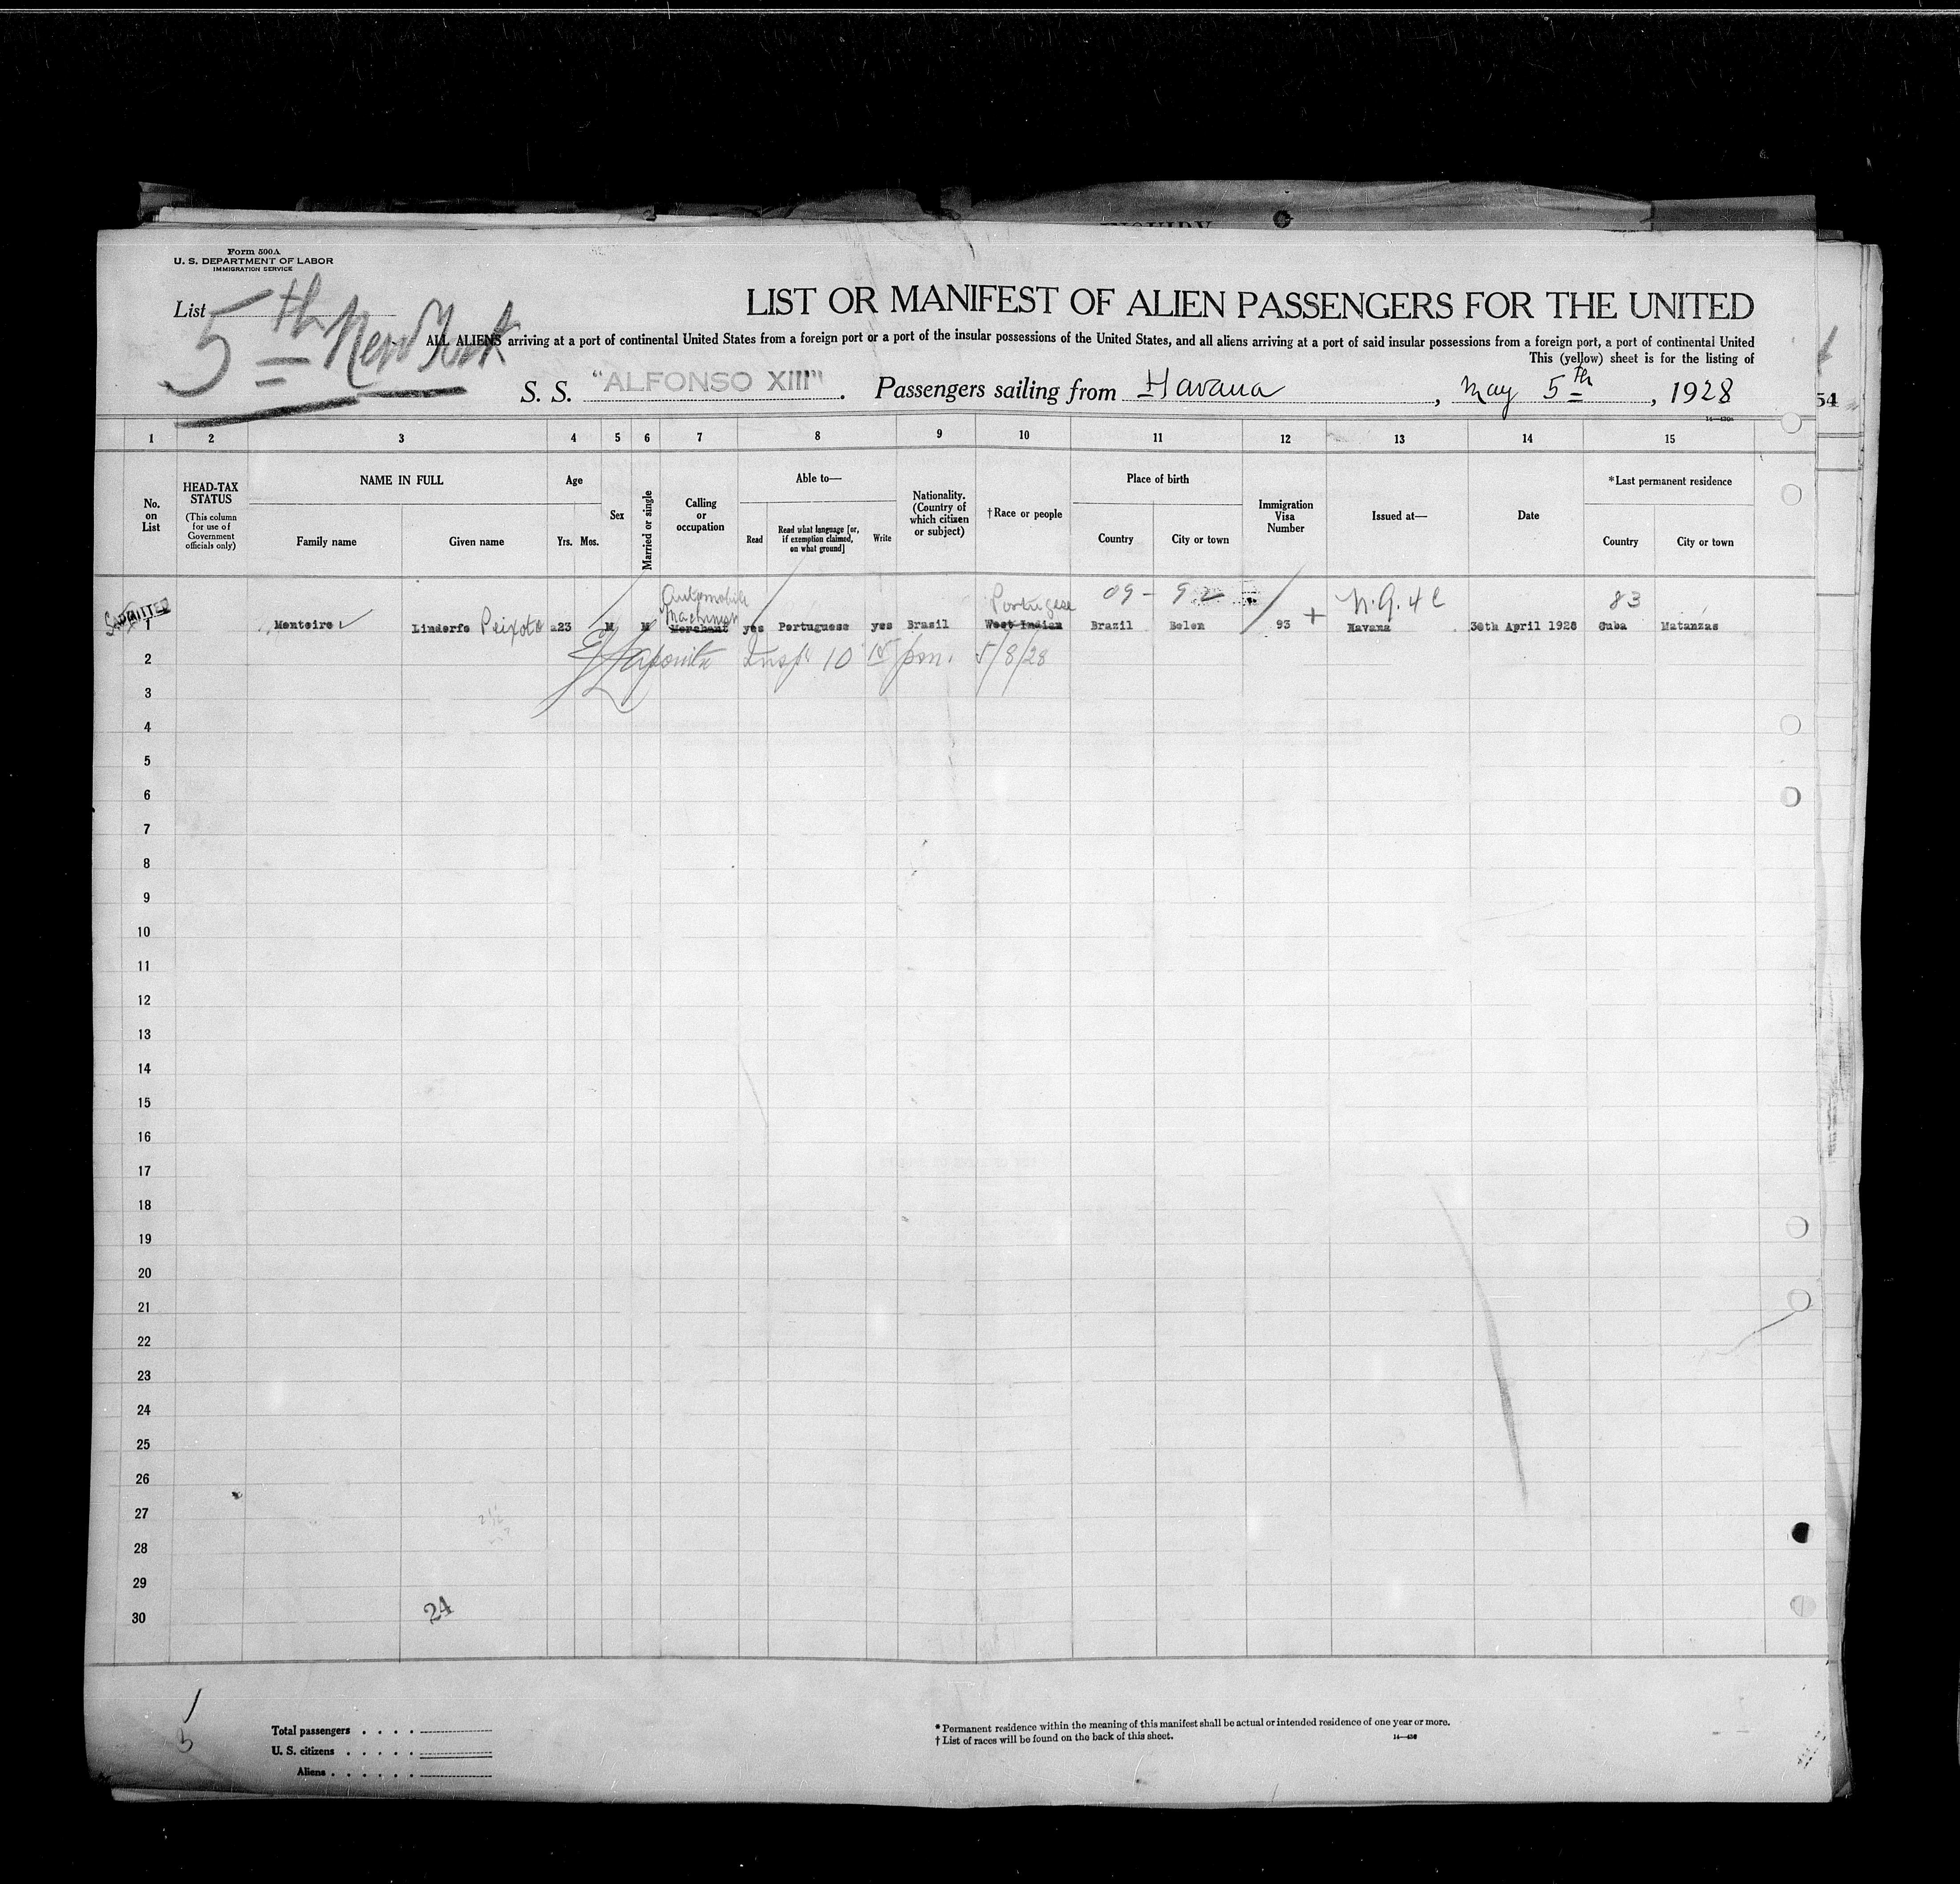 INQUIRY
Form 500A
U. S. DEPARTMENT OF LABOR
IMMIGRATION SERVICE
List
5th New York
LIST OR MANIFEST OF ALIEN PASSENGERS FOR THE UNITED
ALL ALIENS arriving at a port of continental United States from a foreign port or a port of the insular possessions of the United States, and all aliens arriving at a port of said insular possessions from a foreign port, a port of continental United
This (yellow) sheet is for the listing of
S. S. "ALFONSO XIII". Passengers sailing from Havana, May 5th, 1928
54
1 2 3 4 5 6 7 8 9 10 11 12 13 14 15
No. on List
HEAD-TAX STATUS
(This column for use of Government officials only)
NAME IN FULL
Family name
Given name
Age
Yrs. Mos.
Sex
Married or single
Calling or occupation
Able to—
Read
Read what language [or, if exemption claimed, on what ground]
Write
Nationality. (Country of which citizen or subject)
†Race or people
Place of birth
Country
City or town
Immigration Visa Number
Issued at—
Date
*Last permanent residence
Country
City or town
Automobile Portugese 09 - 92 N.Q. 4 C 83
ADMITTED Machinist
1 Monteiro Lindorfo Peixoto 23 M M Merchant yes Portuguese yes Brasil West Indian Brazil Belen 93 + Havana 30th April 1928 Cuba Matanzas
2 Insp. 10 15 pm. 5/8/28
3
4
5
6
7
8
9
10
11
12
13
14
15
16
17
18
19
20
21
22
23
24
25
26
27
28
29
30
24
Total passengers . . . .
U. S. citizens . . . . .
Aliens . . . . . .
* Permanent residence within the meaning of this manifest shall be actual or intended residence of one year or more.
† List of races will be found on the back of this sheet.